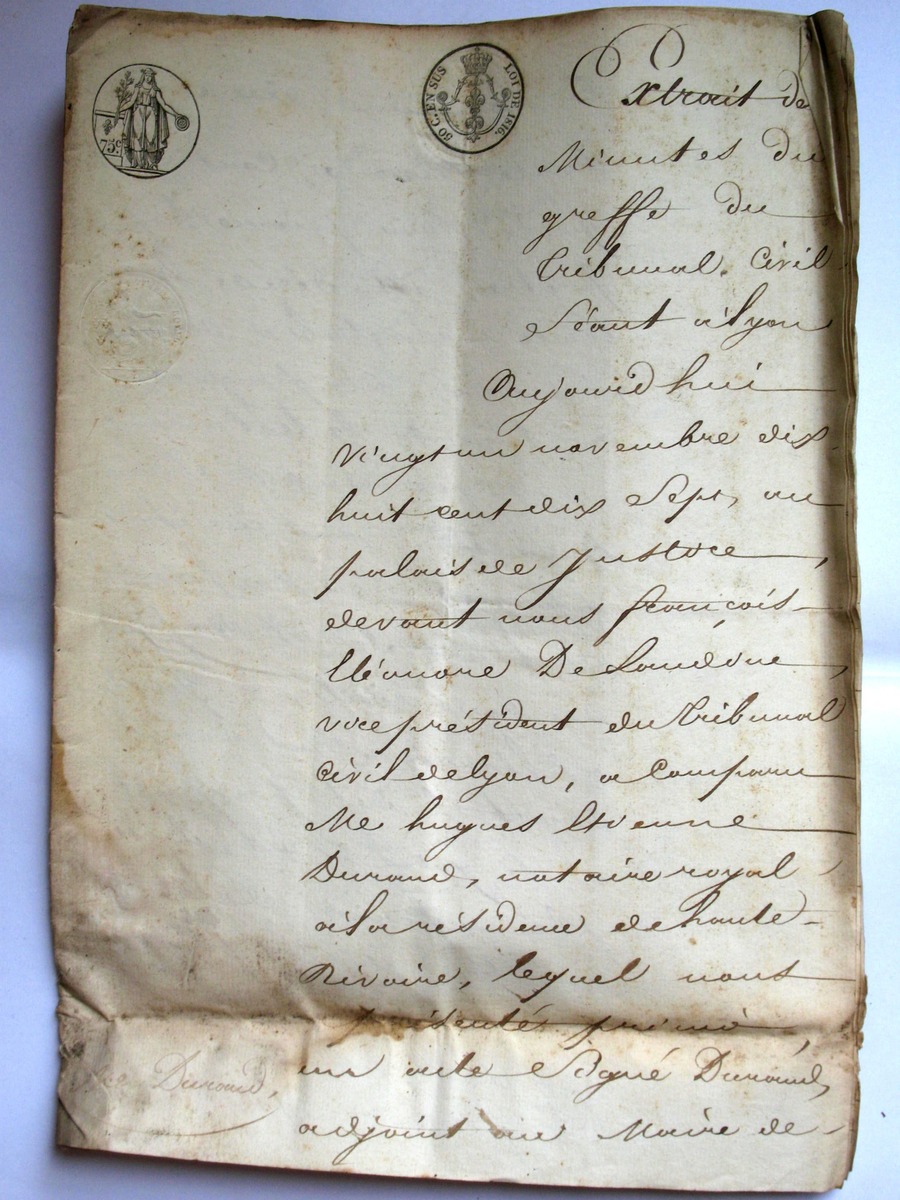 75c
50 C. EN SUS LOI DE 1816.
Extrait de
Minutes du
greffe du
tribunal Civil
Séant à lyon
Aujourd'hui
vingt un novembre dix
huit cent dix Sept, au
palais de Justice,
devant nous françois
Eléonore De Landine,
vice président du tribunal
Civil de lyon, a Comparu
Me hugues Etienne
Durand, notaire royal
à la résidence de haute
Rivoire, lequel nous
présenté primo,
un acte Signé Durand,
adjoint au Maire de
Durand,